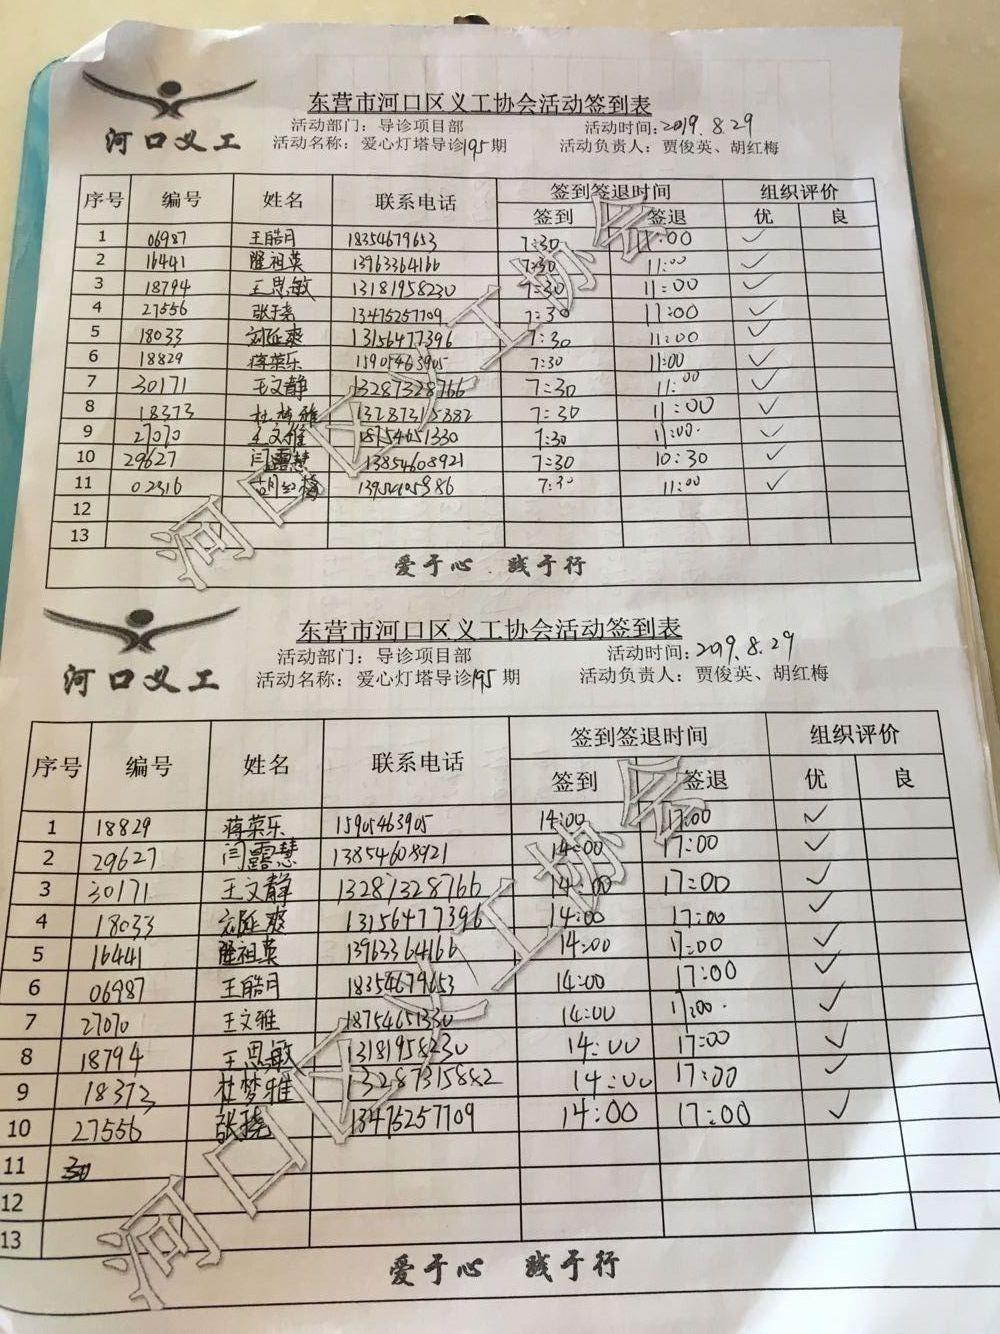 河口义工
东营市河口区义工协会活动签到表
活动部门：导诊项目部 活动时间：2019.8.29
活动名称：爱心灯塔导诊195期 活动负责人：贾俊英、胡红梅
序号 编号 姓名 联系电话 签到签退时间 组织评价
签到 签退 优 良
1 06987 王皓月 18354679653 7:30 11:00 ✓
2 16441 隆祖英 13963364166 7:30 11:00 ✓
3 18794 王思敏 13181958230 7:30 11:00 ✓
4 27556 张挠 13475257709 7:30 11:00 ✓
5 18033 刘延爽 13156477396 7:30 11:00 ✓
6 18829 蒋荣乐 15905463905 7:30 11:00 ✓
7 30171 王文静 13287328766 7:30 11:00 ✓
8 18373 杜梦雅 13287315882 7:30 11:00 ✓
9 27070 王文雅 18754651330 7:30 11:00 ✓
10 29627 闫露慧 13854608921 7:30 10:30 ✓
11 02316 胡红梅 7:30 11:00 ✓
12
13
爱于心 践于行
河口区义工协会
河口义工
东营市河口区义工协会活动签到表
活动部门：导诊项目部 活动时间：2019.8.29
活动名称：爱心灯塔导诊195期 活动负责人：贾俊英、胡红梅
序号 编号 姓名 联系电话 签到签退时间 组织评价
签到 签退 优 良
1 18829 蒋荣乐 15905463905 14:00 17:00 ✓
2 29627 闫露慧 13854608921 14:00 17:00 ✓
3 30171 王文静 13287328766 14:00 17:00 ✓
4 18033 刘延爽 13156477396 14:00 17:00 ✓
5 16441 隆祖英 13963364166 14:00 17:00 ✓
6 06987 王皓月 18354679653 14:00 17:00 ✓
7 27070 王文雅 18754651330 14:00 17:00 ✓
8 18794 王思敏 13181958230 14:00 17:00 ✓
9 18373 杜梦雅 13287315882 14:00 17:00 ✓
10 27556 张挠 13475257709 14:00 17:00 ✓
11
12
13
爱于心 践于行
河口区义工协会